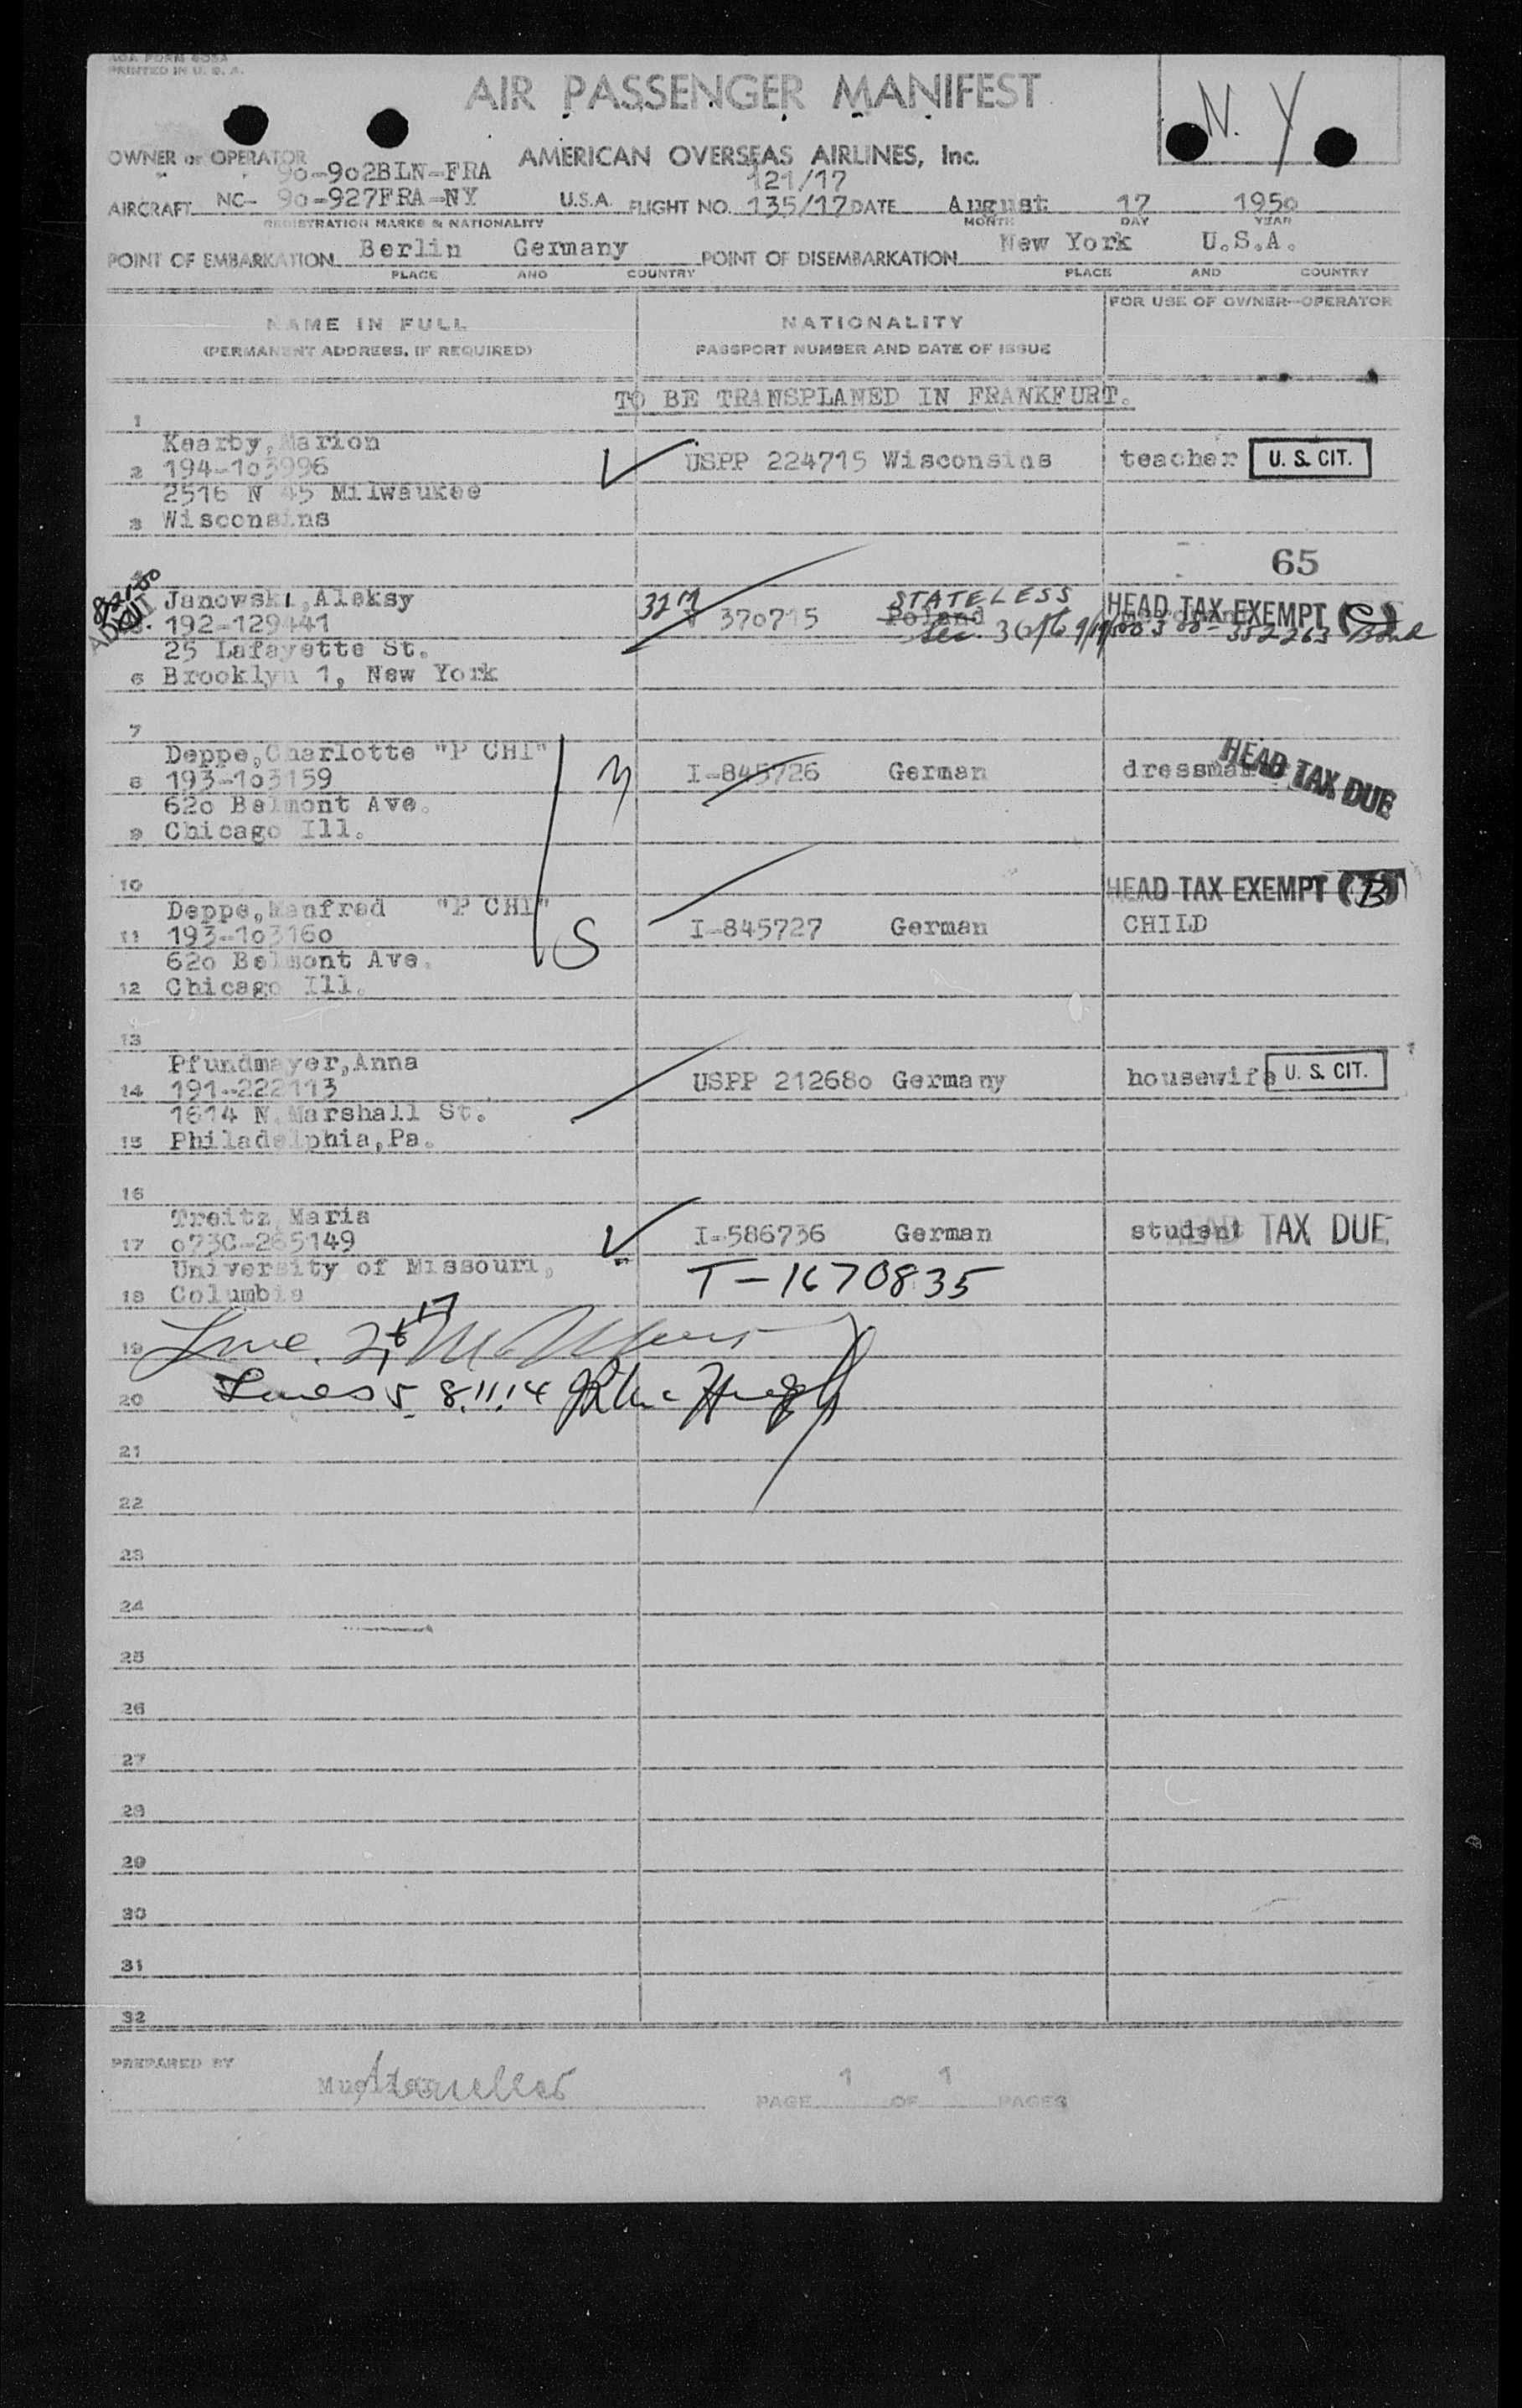 AOA FORM 605A
PRINTED IN U. S. A.
AIR PASSENGER MANIFEST
N. Y
OWNER or OPERATOR
AMERICAN OVERSEAS AIRLINES, Inc.
90-902BLN-FRA
121/17
AIRCRAFT NC- 90-927FRA-NY U.S.A. FLIGHT NO. 135/17 DATE August 17 1950
REGISTRATION MARKS & NATIONALITY MONTH DAY YEAR
POINT OF EMBARKATION Berlin Germany POINT OF DISEMBARKATION New York U.S.A.
PLACE AND COUNTRY PLACE AND COUNTRY
FOR USE OF OWNER-OPERATOR
NAME IN FULL NATIONALITY
(PERMANENT ADDRESS, IF REQUIRED) PASSPORT NUMBER AND DATE OF ISSUE
TO BE TRANSPLANED IN FRANKFURT.
1
Kearby,Marion
2 194-103996 USPP 224715 Wisconsins teacher U. S. CIT.
2516 N 45 Milwaukee
3 Wisconsins
65
Janowski,Aleksy 32 M STATELESS HEAD TAX EXEMPT (C)
192-129441 V 370715 Poland
25 Lafayette St.
6 Brooklyn 1, New York
7
Deppe,Charlotte "P CHI"
8 193-103159 M I-845726 German HEAD TAX DUE
620 Belmont Ave.
9 Chicago Ill.
10
HEAD TAX EXEMPT (B)
Deppe,Manfred "P CHI"
11 193-103160 S I-845727 German CHILD
620 Belmont Ave.
12 Chicago Ill.
13
Pfundmayer,Anna
14 191-222113 USPP 212680 Germany housewife U. S. CIT.
1614 N.Marshall St.
15 Philadelphia,Pa.
16
Treitz Maria
17 073C-265149 I-586736 German student HEAD TAX DUE
University of Missouri,
18 Columbia T-1670835
19
20 Lines 5 8.11.14
21
22
23
24
25
26
27
28
29
30
31
32
PREPARED BY
PAGE 1 OF 1 PAGES